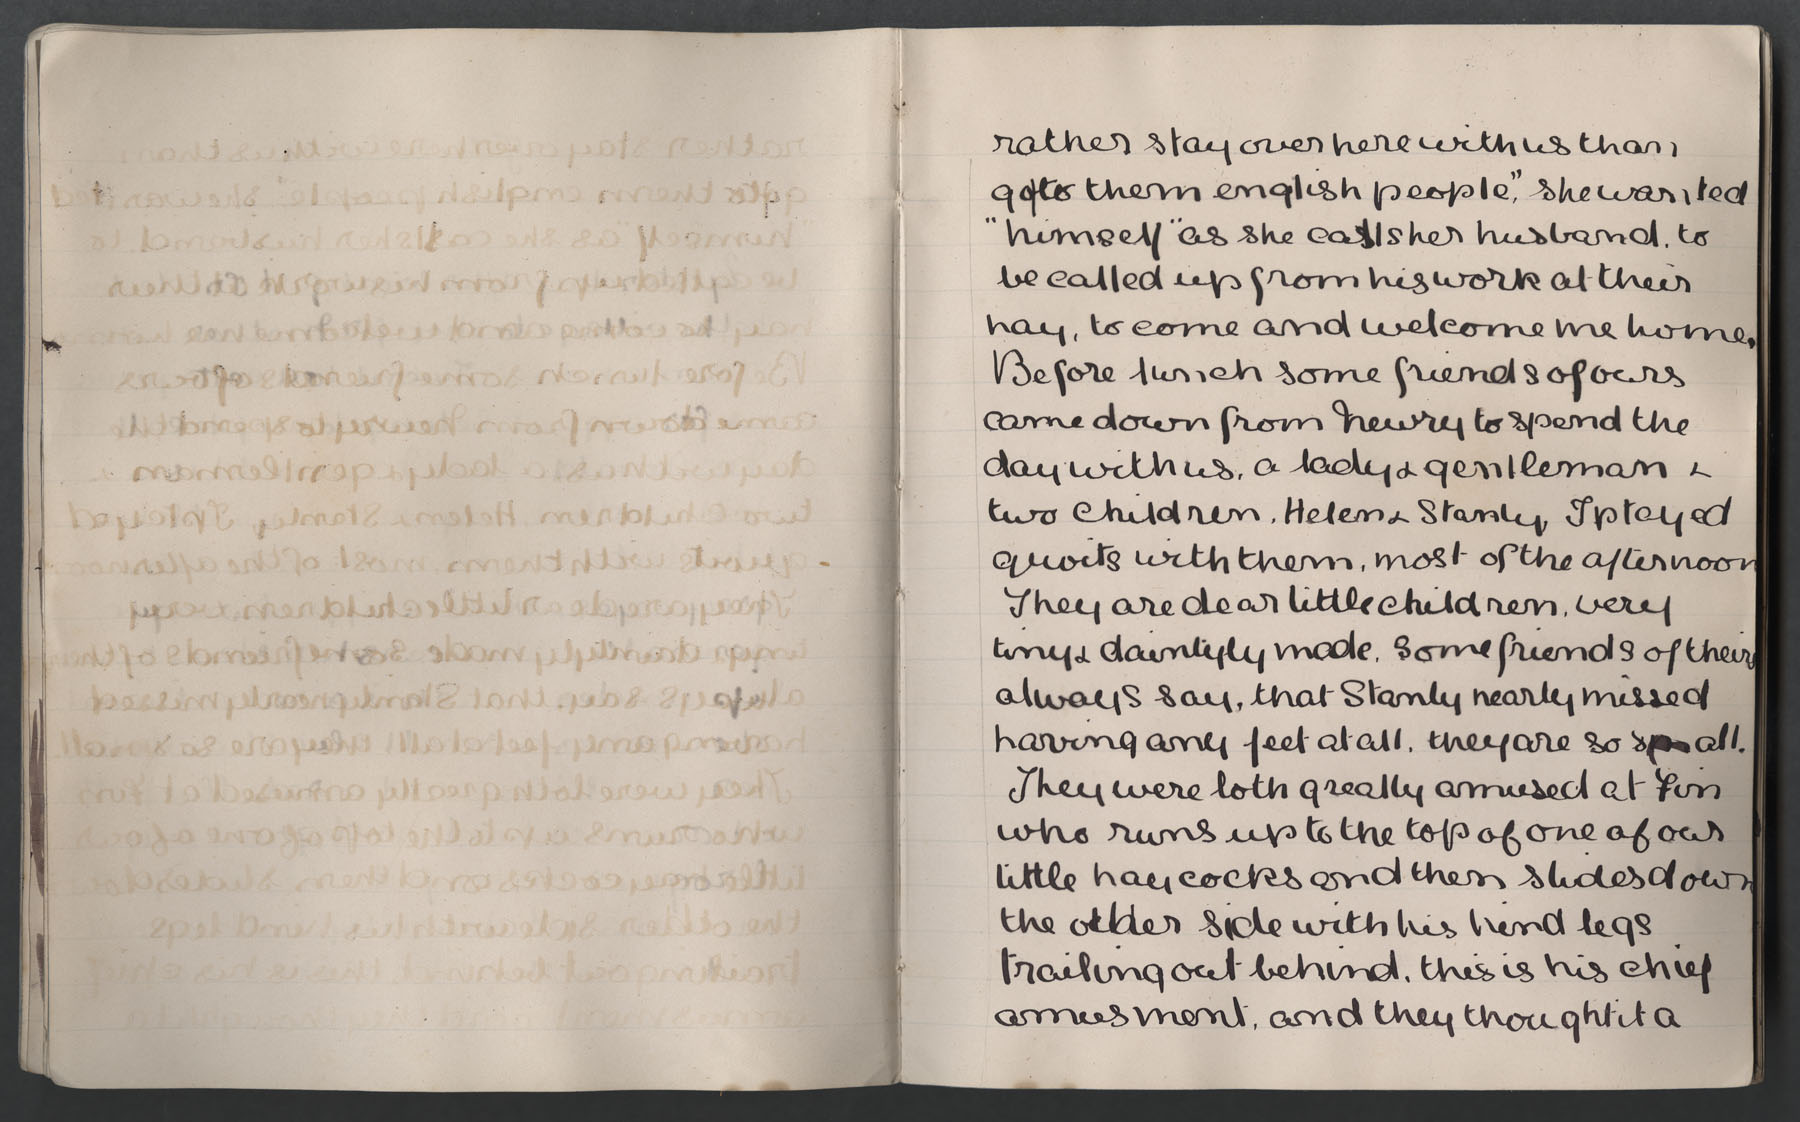 rather stay over here with us than
go to them english people," she wanted
"himself" as she calls her husband, to
be called up from his work at their
hay, to come and welcome me home.
Before lunch some friends of ours
came down from Newry to spend the
day with us, a lady & gentleman &
two children, Helen & Stanly, I played
quoits with them, most of the afternoon
They are dear little children, very
tiny & daintyly made. Some friends of theirs
always say, that Stanly nearly missed
having any feet at all, they are so small.
They were both greatly amused at Fin
who runs up to the top of one of our
little haycocks and then slides down
the other side with his hind legs
trailing out behind, this is his chief
amusment, and they thought it a